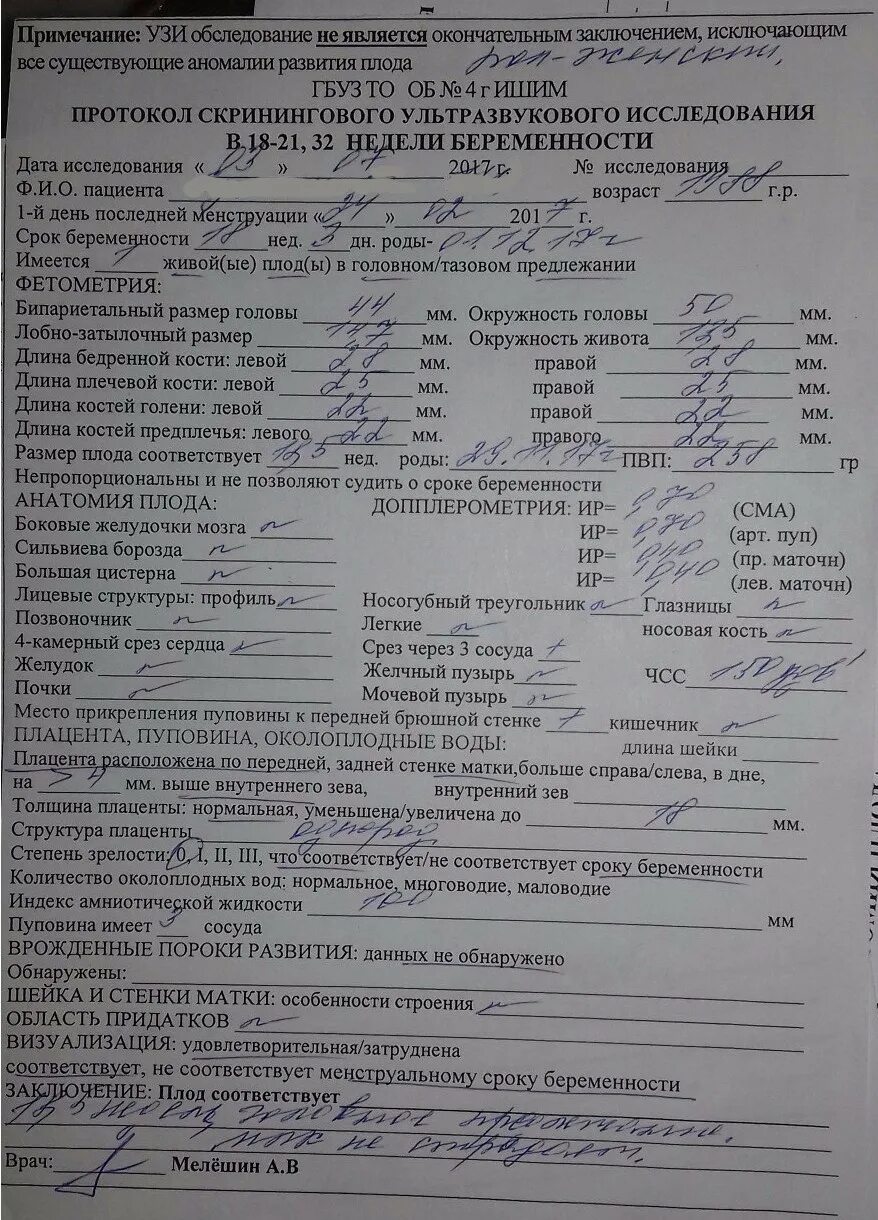 Примечание: УЗИ обследование не является окончательным заключением, исключающим
все существующие аномалии развития плода пол - женский.
ГБУЗ ТО ОБ № 4 г ИШИМ
ПРОТОКОЛ СКРИНИНГОВОГО УЛЬТРАЗВУКОВОГО ИССЛЕДОВАНИЯ
В 18-21, 32 НЕДЕЛИ БЕРЕМЕННОСТИ
Дата исследования « 03 » 07 2017 г. № исследования
Ф.И.О. пациента возраст 1988 г.р.
1-й день последней менструации « 24 » 02 2017 г.
Срок беременности 18 нед. 3 дн. роды- 01.12.17г
Имеется 1 живой(ые) плод(ы) в головном/тазовом предлежании
ФЕТОМЕТРИЯ:
Бипариетальный размер головы 44 мм. Окружность головы 50 мм.
Лобно-затылочный размер 147 мм. Окружность живота 135 мм.
Длина бедренной кости: левой 28 мм. правой 28 мм.
Длина плечевой кости: левой 25 мм. правой 25 мм.
Длина костей голени: левой 22 мм. правой 22 мм.
Длина костей предплечья: левого 22 мм. правого 22 мм.
Размер плода соответствует нед. роды: 29.11.17г ПВП: 258 гр
Непропорциональны и не позволяют судить о сроке беременности
АНАТОМИЯ ПЛОДА: ДОППЛЕРОМЕТРИЯ: ИР= 0,70 (СМА)
Боковые желудочки мозга n ИР= 0,70 (арт. пуп)
Сильвиева борозда n ИР= 0,40 (пр. маточн)
Большая цистерна n ИР= 0,40 (лев. маточн)
Лицевые структуры: профиль n Носогубный треугольник n Глазницы n
Позвоночник n Легкие n носовая кость n
4-камерный срез сердца n Срез через 3 сосуда +
Желудок n Желчный пузырь n ЧСС 150 уд/1
Почки n Мочевой пузырь n
Место прикрепления пуповины к передней брюшной стенке + кишечник n
ПЛАЦЕНТА, ПУПОВИНА, ОКОЛОПЛОДНЫЕ ВОДЫ: длина шейки
Плацента расположена по передней, задней стенке матки,больше справа/слева, в дне,
на мм. выше внутреннего зева, внутренний зев
Толщина плаценты: нормальная, уменьшена/увеличена до 18 мм.
Структура плаценты однород
Степень зрелости: 0, I, II, III, что соответствует/не соответствует сроку беременности
Количество околоплодных вод: нормальное, многоводие, маловодие
Индекс амниотической жидкости 100 мм
Пуповина имеет 3 сосуда
ВРОЖДЕННЫЕ ПОРОКИ РАЗВИТИЯ: данных не обнаружено
Обнаружены:
ШЕЙКА И СТЕНКИ МАТКИ: особенности строения n
ОБЛАСТЬ ПРИДАТКОВ n
ВИЗУАЛИЗАЦИЯ: удовлетворительная/затруднена
соответствует, не соответствует менструальному сроку беременности
ЗАКЛЮЧЕНИЕ: Плод соответствует
недель, головное предлежание.
мпк не страдает.
Врач: Мелёшин А.В